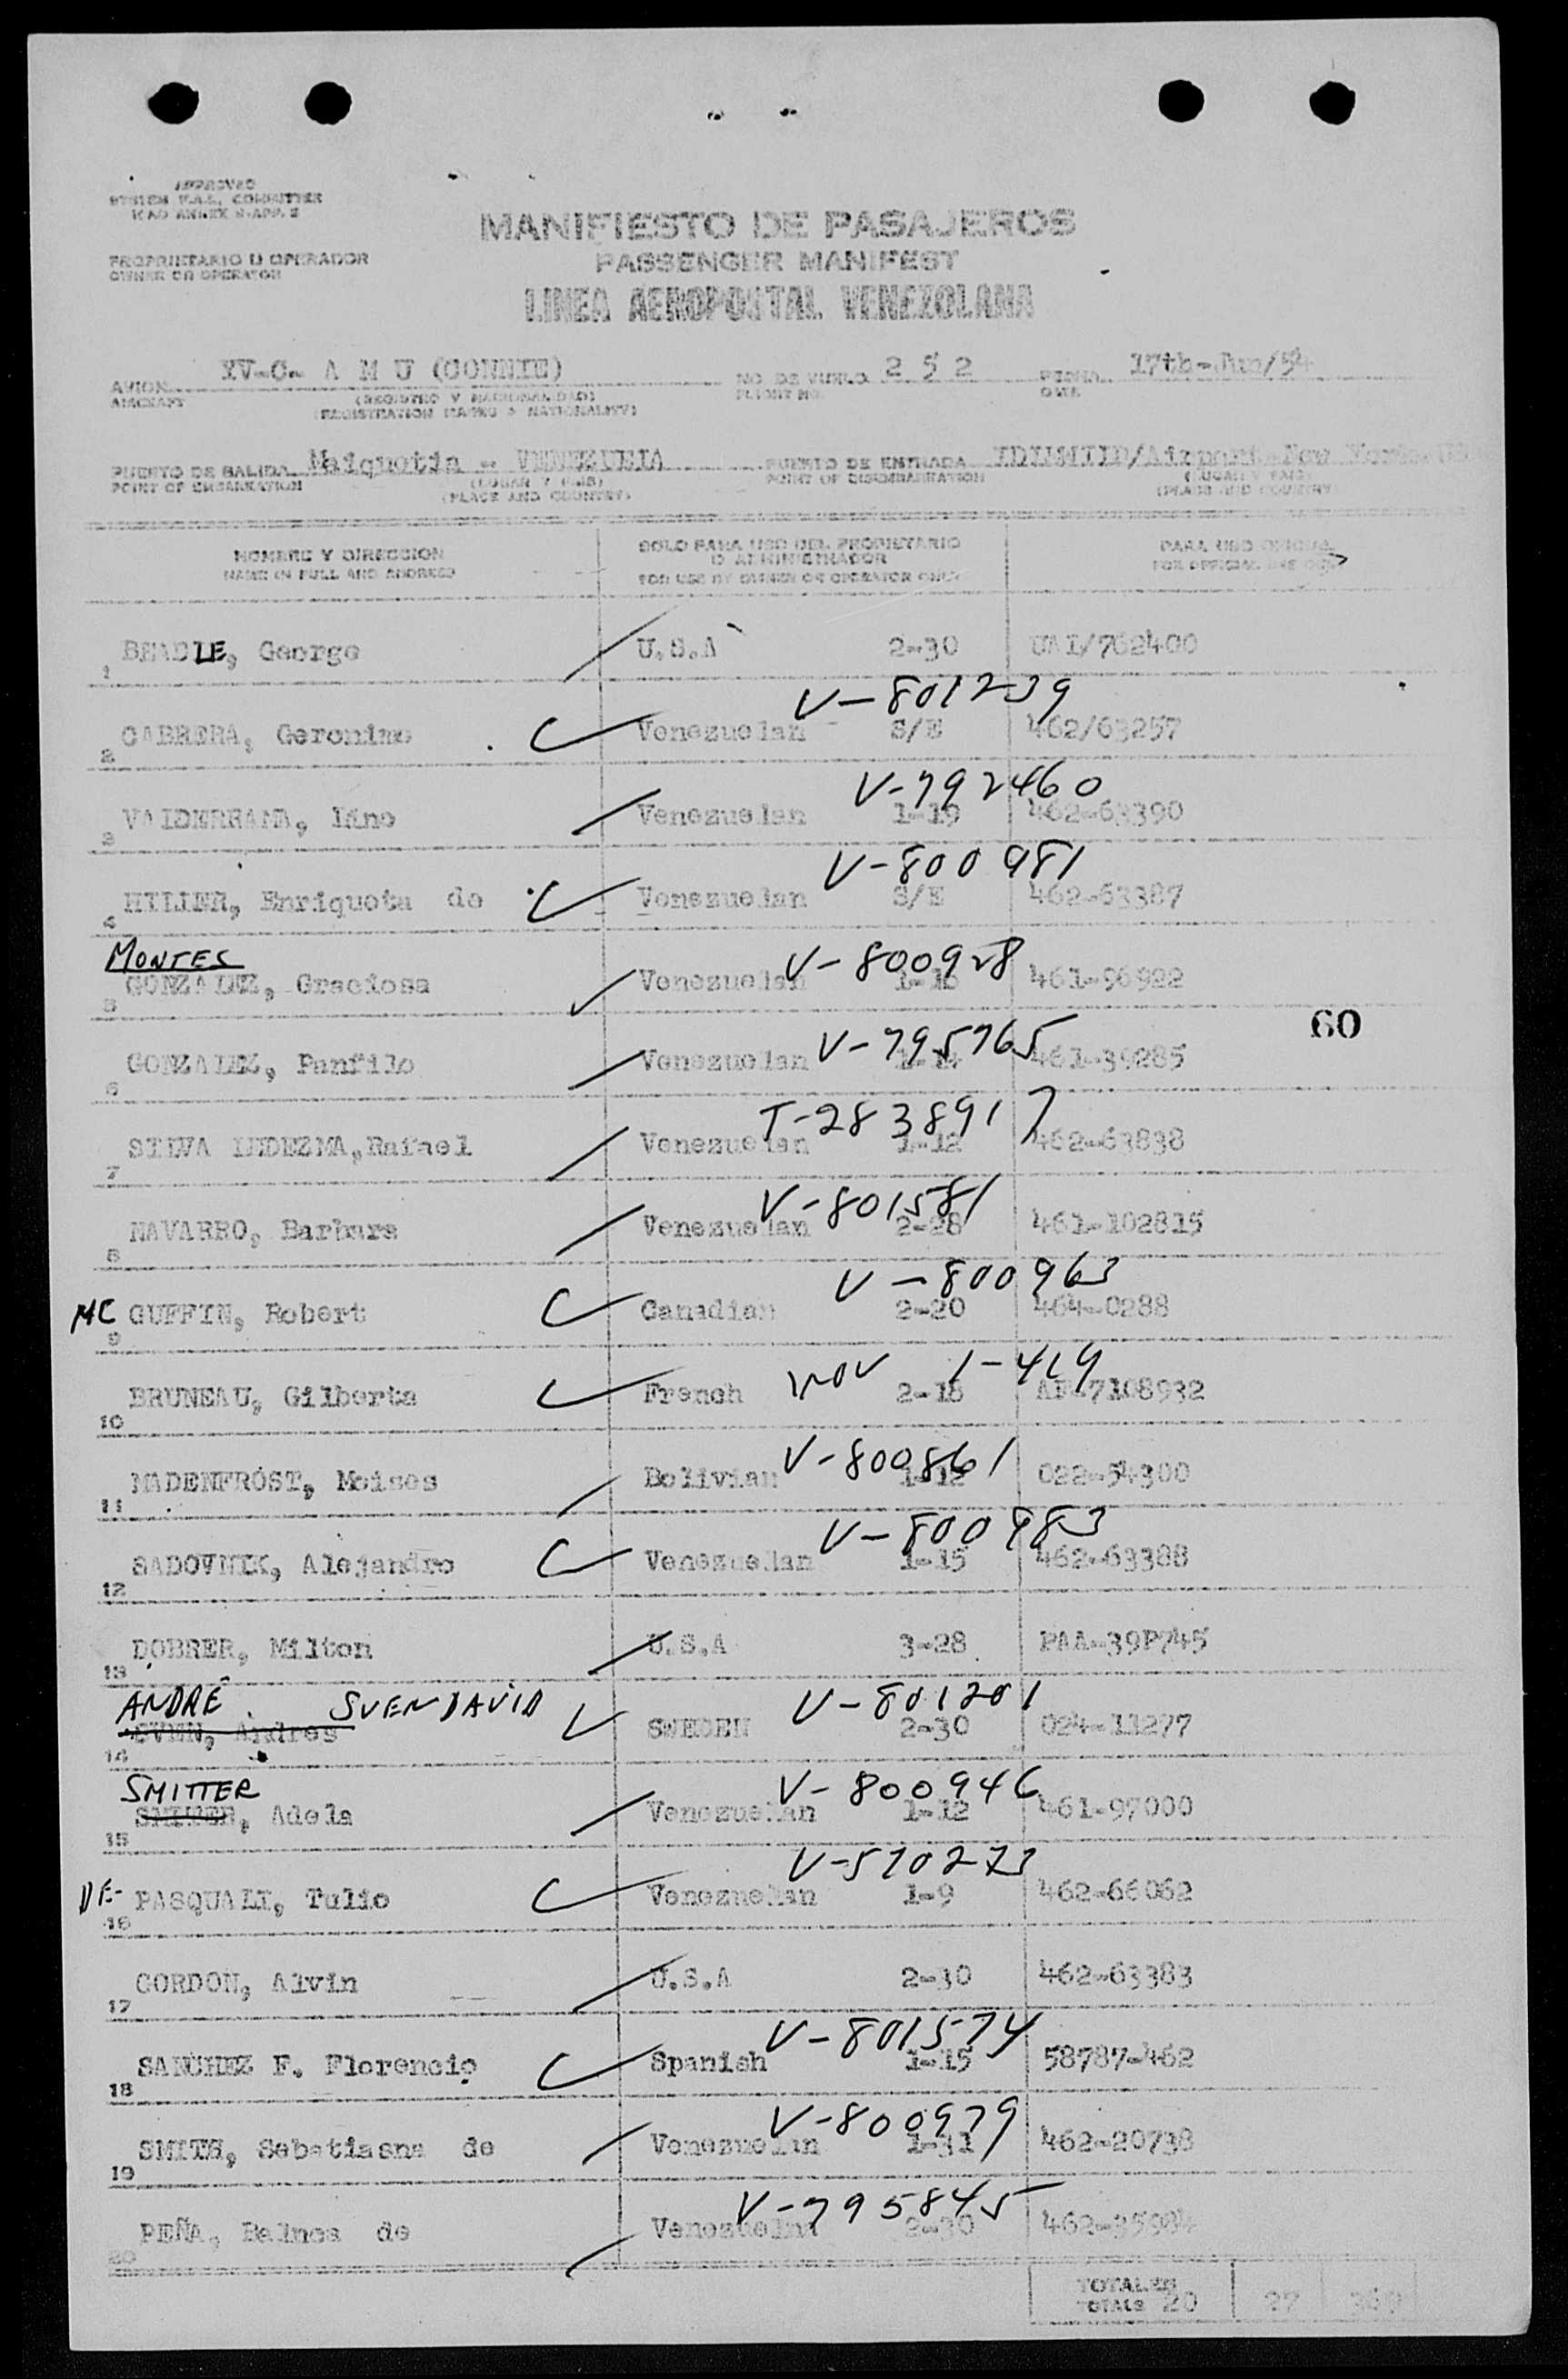 APPROVED
SYSTEM F.A.L. COMMITTEE
ICAO ANNEX 9-APP. 2
MANIFIESTO DE PASAJEROS
PROPRIETARIO U OPERADOR
OWNER OR OPERATOR
PASSENGER MANIFEST
LINEA AEROPOSTAL VENEZOLANA
AVION YV-C- A M U (CONNIE) NO. DE VUELO 2 5 2 FECHA 17th-Jun/54
AIRCRAFT (REGISTRO Y NACIONALIDAD) FLIGHT NO. DATE
(REGISTRATION MARKS & NATIONALITY)
PUERTO DE SALIDA Maiquetia - VENEZUELA PUERTO DE ENTRADA IDLEWILD/Airport-New York
POINT OF EMBARKATION (LUGAR Y PAIS) POINT OF DISEMBARKATION (LUGAR Y PAIS)
(PLACE AND COUNTRY) (PLACE AND COUNTRY)
NOMBRE Y DIRECCION SOLO PARA USO DEL PROPIETARIO O ADMINISTRADOR PARA USO OFICIAL
NAME IN FULL AND ADDRESS FOR USE BY OWNER OR OPERATOR ONLY FOR OFFICIAL USE ONLY
1 BEADLE, George U.S.A 2-30 UAL/762400
V-801239
2 CABRERA, Geronimo Venezuelan S/E 462/63257
V-792460
3 VALDERRAMA, Lino Venezuelan 1-19 462-63390
V-800981
4 HILLER, Enriqueta de Venezuelan S/E 462-63387
MONTES V-800928
5 GONZALEZ, Graciosa Venezuelan 1-16 461-96922
60
V-795765
6 GONZALEZ, Panfilo Venezuelan 461-39285
T-2838917
7 SILVA LEDEZMA, Rafael Venezuelan 1-12 462-63838
V-801581
8 NAVARRO, Barbara Venezuelan 2-28 461-102815
V-800963
9 MC GUFFIN, Robert Canadian 2-20 464-0288
1-419
10 BRUNEAU, Gilberte French 2-18 AF-7108932
V-800861
11 MADENFROST, Moises Bolivian 1-12 022-54300
V-800983
12 SADOVNIK, Alejandro Venezuelan 1-15 462-63388
13 DOBRER, Milton U.S.A 3-28 PAA-39P745
ANDRÉ SVEN DAVID V-801201
14 SVEN, Andres SWEDEN 2-30 024-11277
SMITTER V-800946
15 Adela Venezuelan 1-12 461-97000
V-570273
16 DE- PASQUALI, Tulio Venezuelan 1-9 462-66062
17 GORDON, Alvin U.S.A 2-30 462-63383
V-801574
18 SANCHEZ F. Florencio Spanish 1-15 58787-462
V-800979
19 SMITH, Sebatiasna de Venezuelan 1-31 462-20738
V-795845
20 PEÑA, Dalnes de Venezuelan 2-30 462-35984
TOTALES
TOTALS 20 27 369